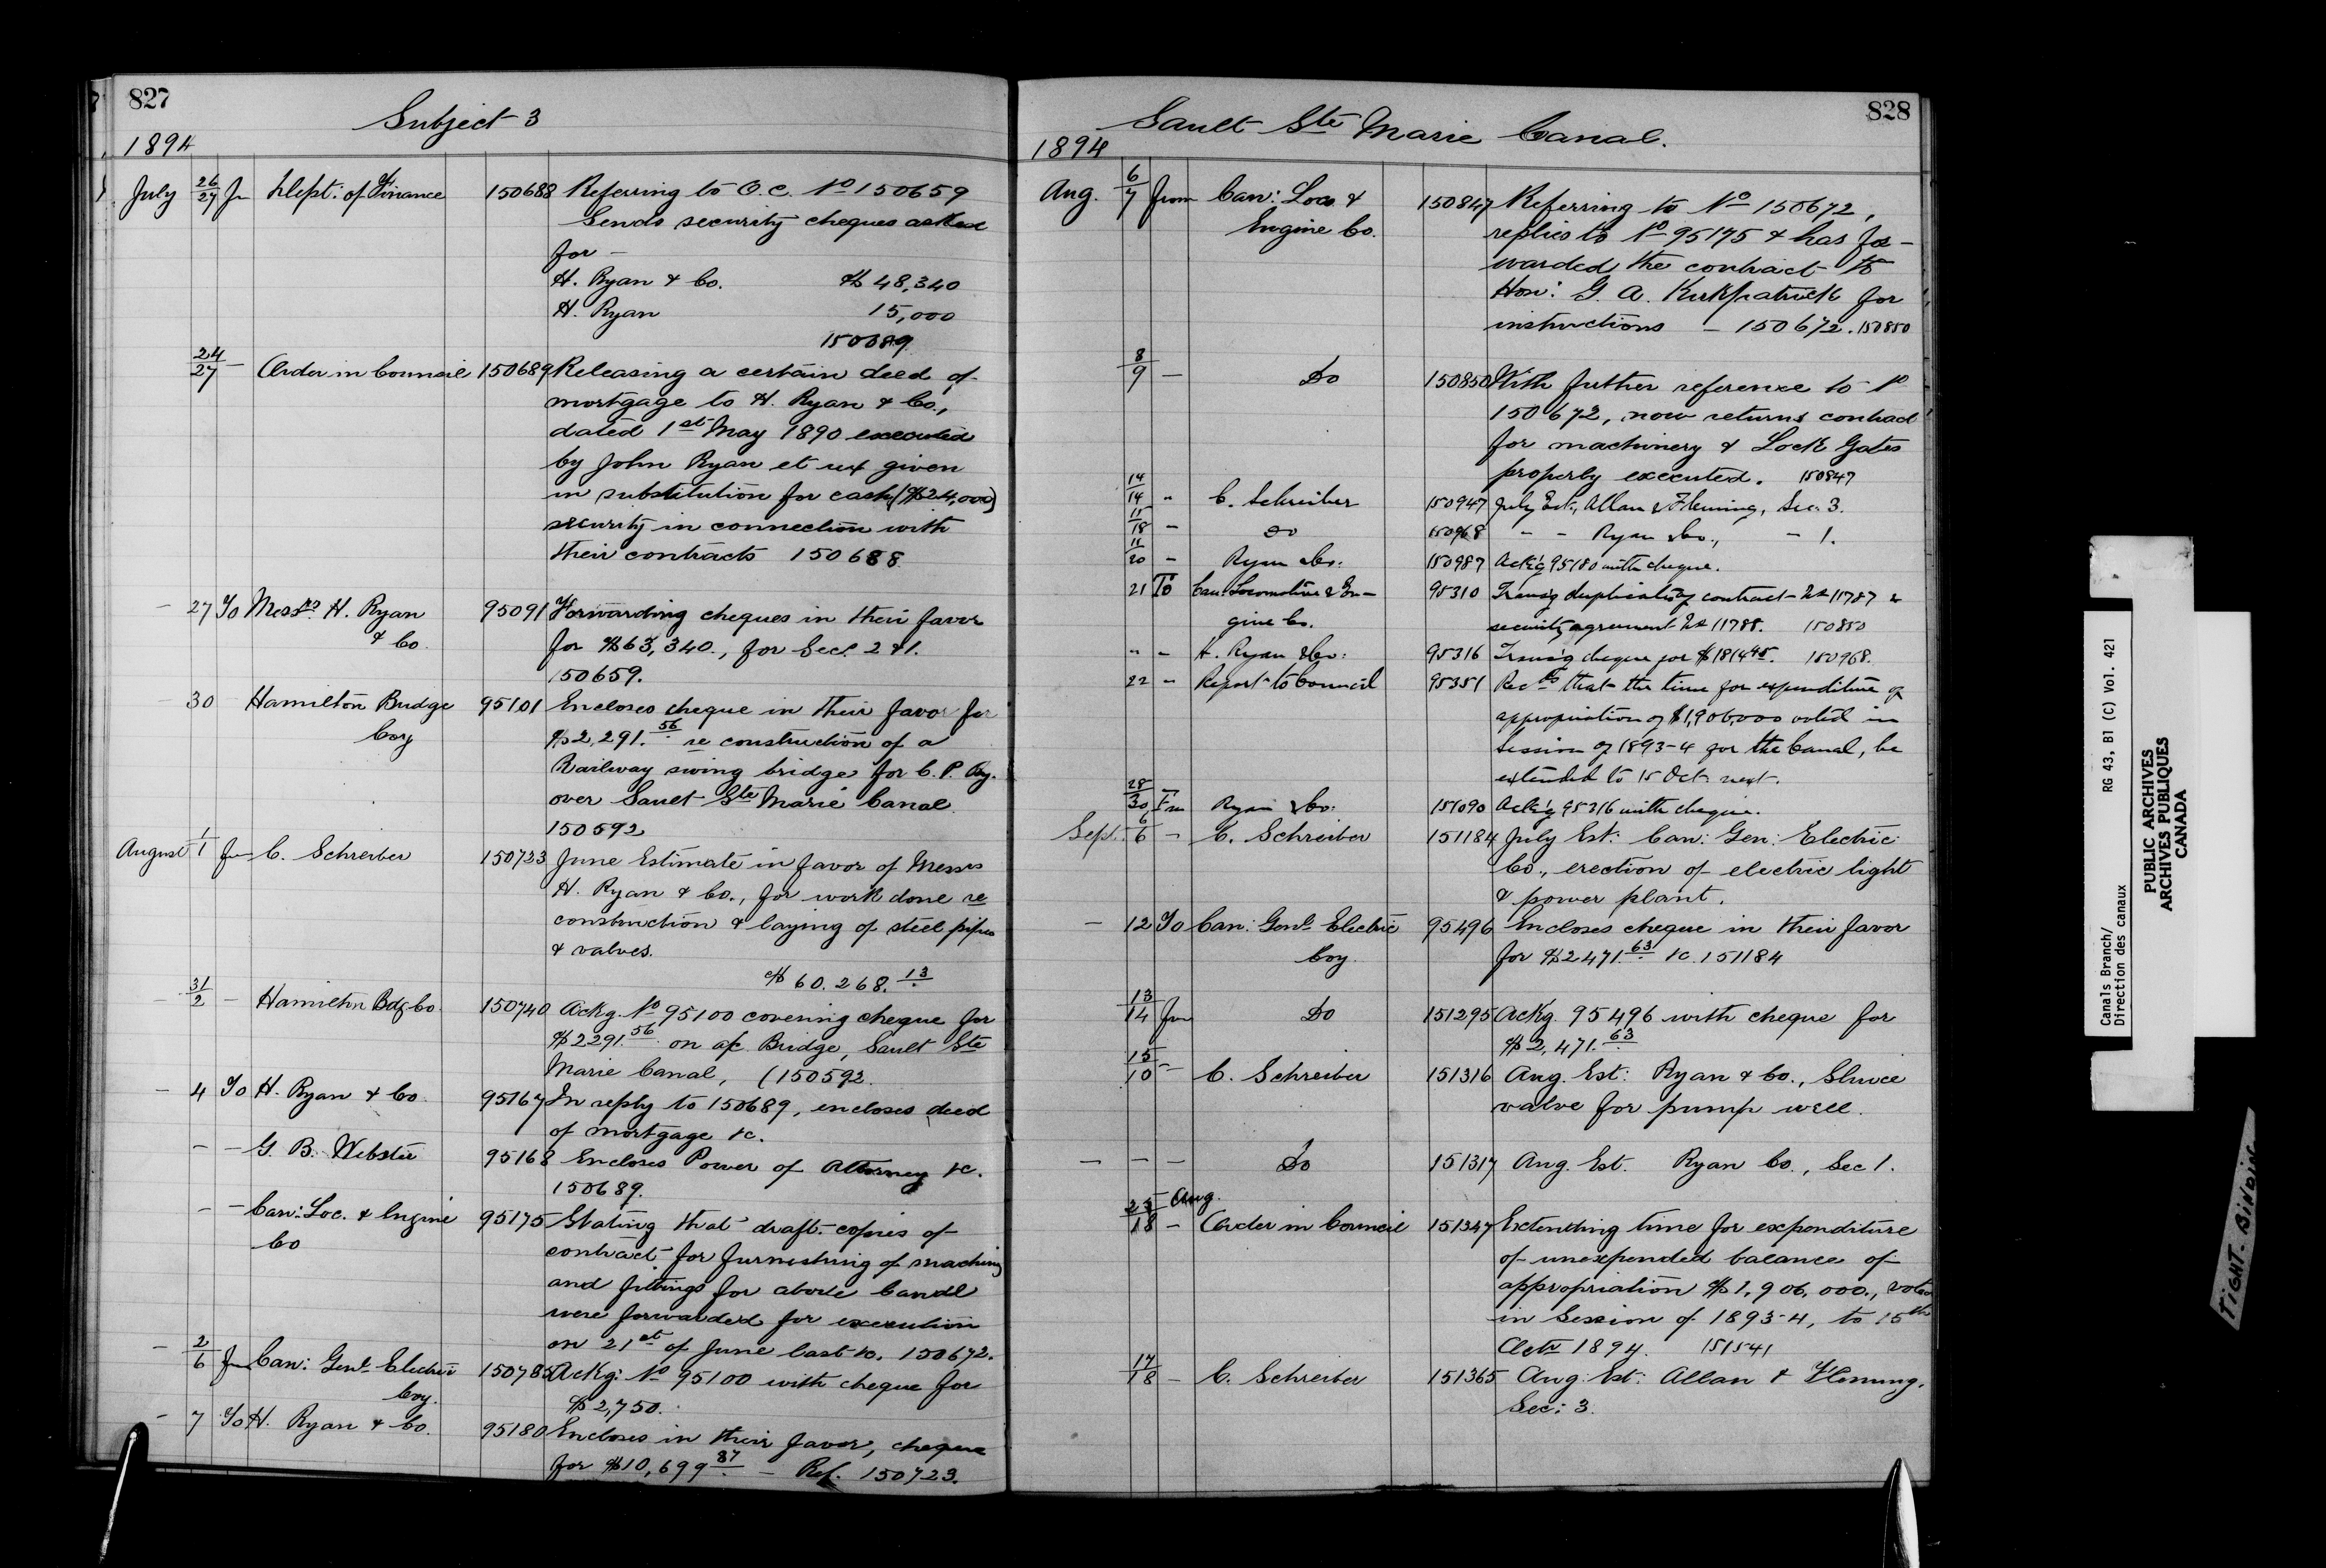 827
Subject 3
1894
July 26/27 fr Dept: of Finance 150688 Referring to O.C. No 150659
Sends security cheques asked
for —
H. Ryan & Co. $48,340
H. Ryan 15,000
150689
24/27 — Order in Council 150689 Releasing a certain deed of
mortgage to H. Ryan & Co.,
dated 1st May 1890 executed
by John Ryan et ux given
in substitution for cash ($24,000)
security in connection with
their contracts 150688
— 27 To Messrs H. Ryan 95091 Forwarding cheques in their favor
& Co. for $63,340., for Sec. 2 & 1.
150659.
— 30 Hamilton Bridge 95101 Encloses cheque in their favor for
Coy $2,291.56 re construction of a
Railway swing bridge for C. P. Ry.
over Sault Ste Marie Canal
150592
August 1/1 fr C. Schreiber 150723 June Estimate in favor of Messrs
H. Ryan & Co., for work done re
construction & laying of steel pipes
& valves.
$60.268.13
— 31/2 — Hamilton Bdg Co. 150740 Ackg. No 95100 covering cheque for
$2291.56 on a/c Bridge, Sault Ste
Marie Canal, (150592
— 4 To H. Ryan & Co. 95167 In reply to 150689, encloses deed
of mortgage &c.
— — G. B. Webster 95168 Encloses Power of Attorney &c.
150689.
— — Can: Loc. & Engine 95175 Stating that draft copies of
Co contract for furnishing of machiny
and fittings for above Canal
were forwarded for execution
on 21st of June last &c. 150672.
— 2/6 fr Can: Genl Electric 150785 Ackg: No 95100 with cheque for
Coy. $2,750.
— 7 To H. Ryan & Co. 95180 Encloses in their favor, cheque
for $10,699.87 — Ref. 150723.
828
Sault Ste Marie Canal.
1894
Aug. 6/7 from Can: Loco & 150847 Referring to No 150672,
Engine Co. replies to No 95175 & has for-
warded the contract to
Hon: G. A. Kirkpatrick for
instructions — 150672. 150850
8/9 — Do 150850 With further reference to No
150672, now returns contract
for machinery & Lock Gates
properly executed. 150847
14/14 " C. Schreiber 150947 July Est., Allan & Fleming, Sec. 3.
15/18 — Do 150968 — — Ryan & Co., — 1.
11/20 — Ryan & Co: 150987 Ack'g 95180 with cheque.
21 To Can: Locomotive & En- 95310 Transg duplicate of contract No 11787 &
gine Co. security agreement No 11788. 150850
" — H. Ryan & Co: 95316 Transg cheque for $1814.45. 150968.
22 — Report to Council 95351 Recds that the time for expenditure of
appropriation of $1,906,000 voted in
Session of 1893-4 for the Canal, be
extended to 15 Oct next.
28/30 Frm Ryan & Co: 151090 Ack'g 95316 with cheque.
Sept: 6/6 — C. Schreiber 151184 July Est: Can: Gen: Electric
Co., erection of electric light
& power plant.
— 12 To Can: Genl Electric 95496 Encloses cheque in their favor
Coy. for $2471.63 &c. 151184
13/14 fr Do 151295 Ackg. 95496 with cheque for
$2,471.63
15/10 — C. Schreiber 151316 Aug. Est: Ryan & Co., Sluice
valve for pump well.
— — — Do 151317 Aug. Est. Ryan Co., Sec 1.
23 Aug./18 — Order in Council 151347 Extending time for expenditure
of unexpended balance of
appropriation $1,906,000., voted
in Session of 1893-4, to 15th
Octr 1894. 151541
17/18 — C. Schreiber 151365 Aug: Est: Allan & Fleming.
Sec: 3.
Canals Branch/ RG 43, B1 (C) Vol. 421
Direction des canaux
PUBLIC ARCHIVES
ARCHIVES PUBLIQUES
CANADA
TIGHT BINDING